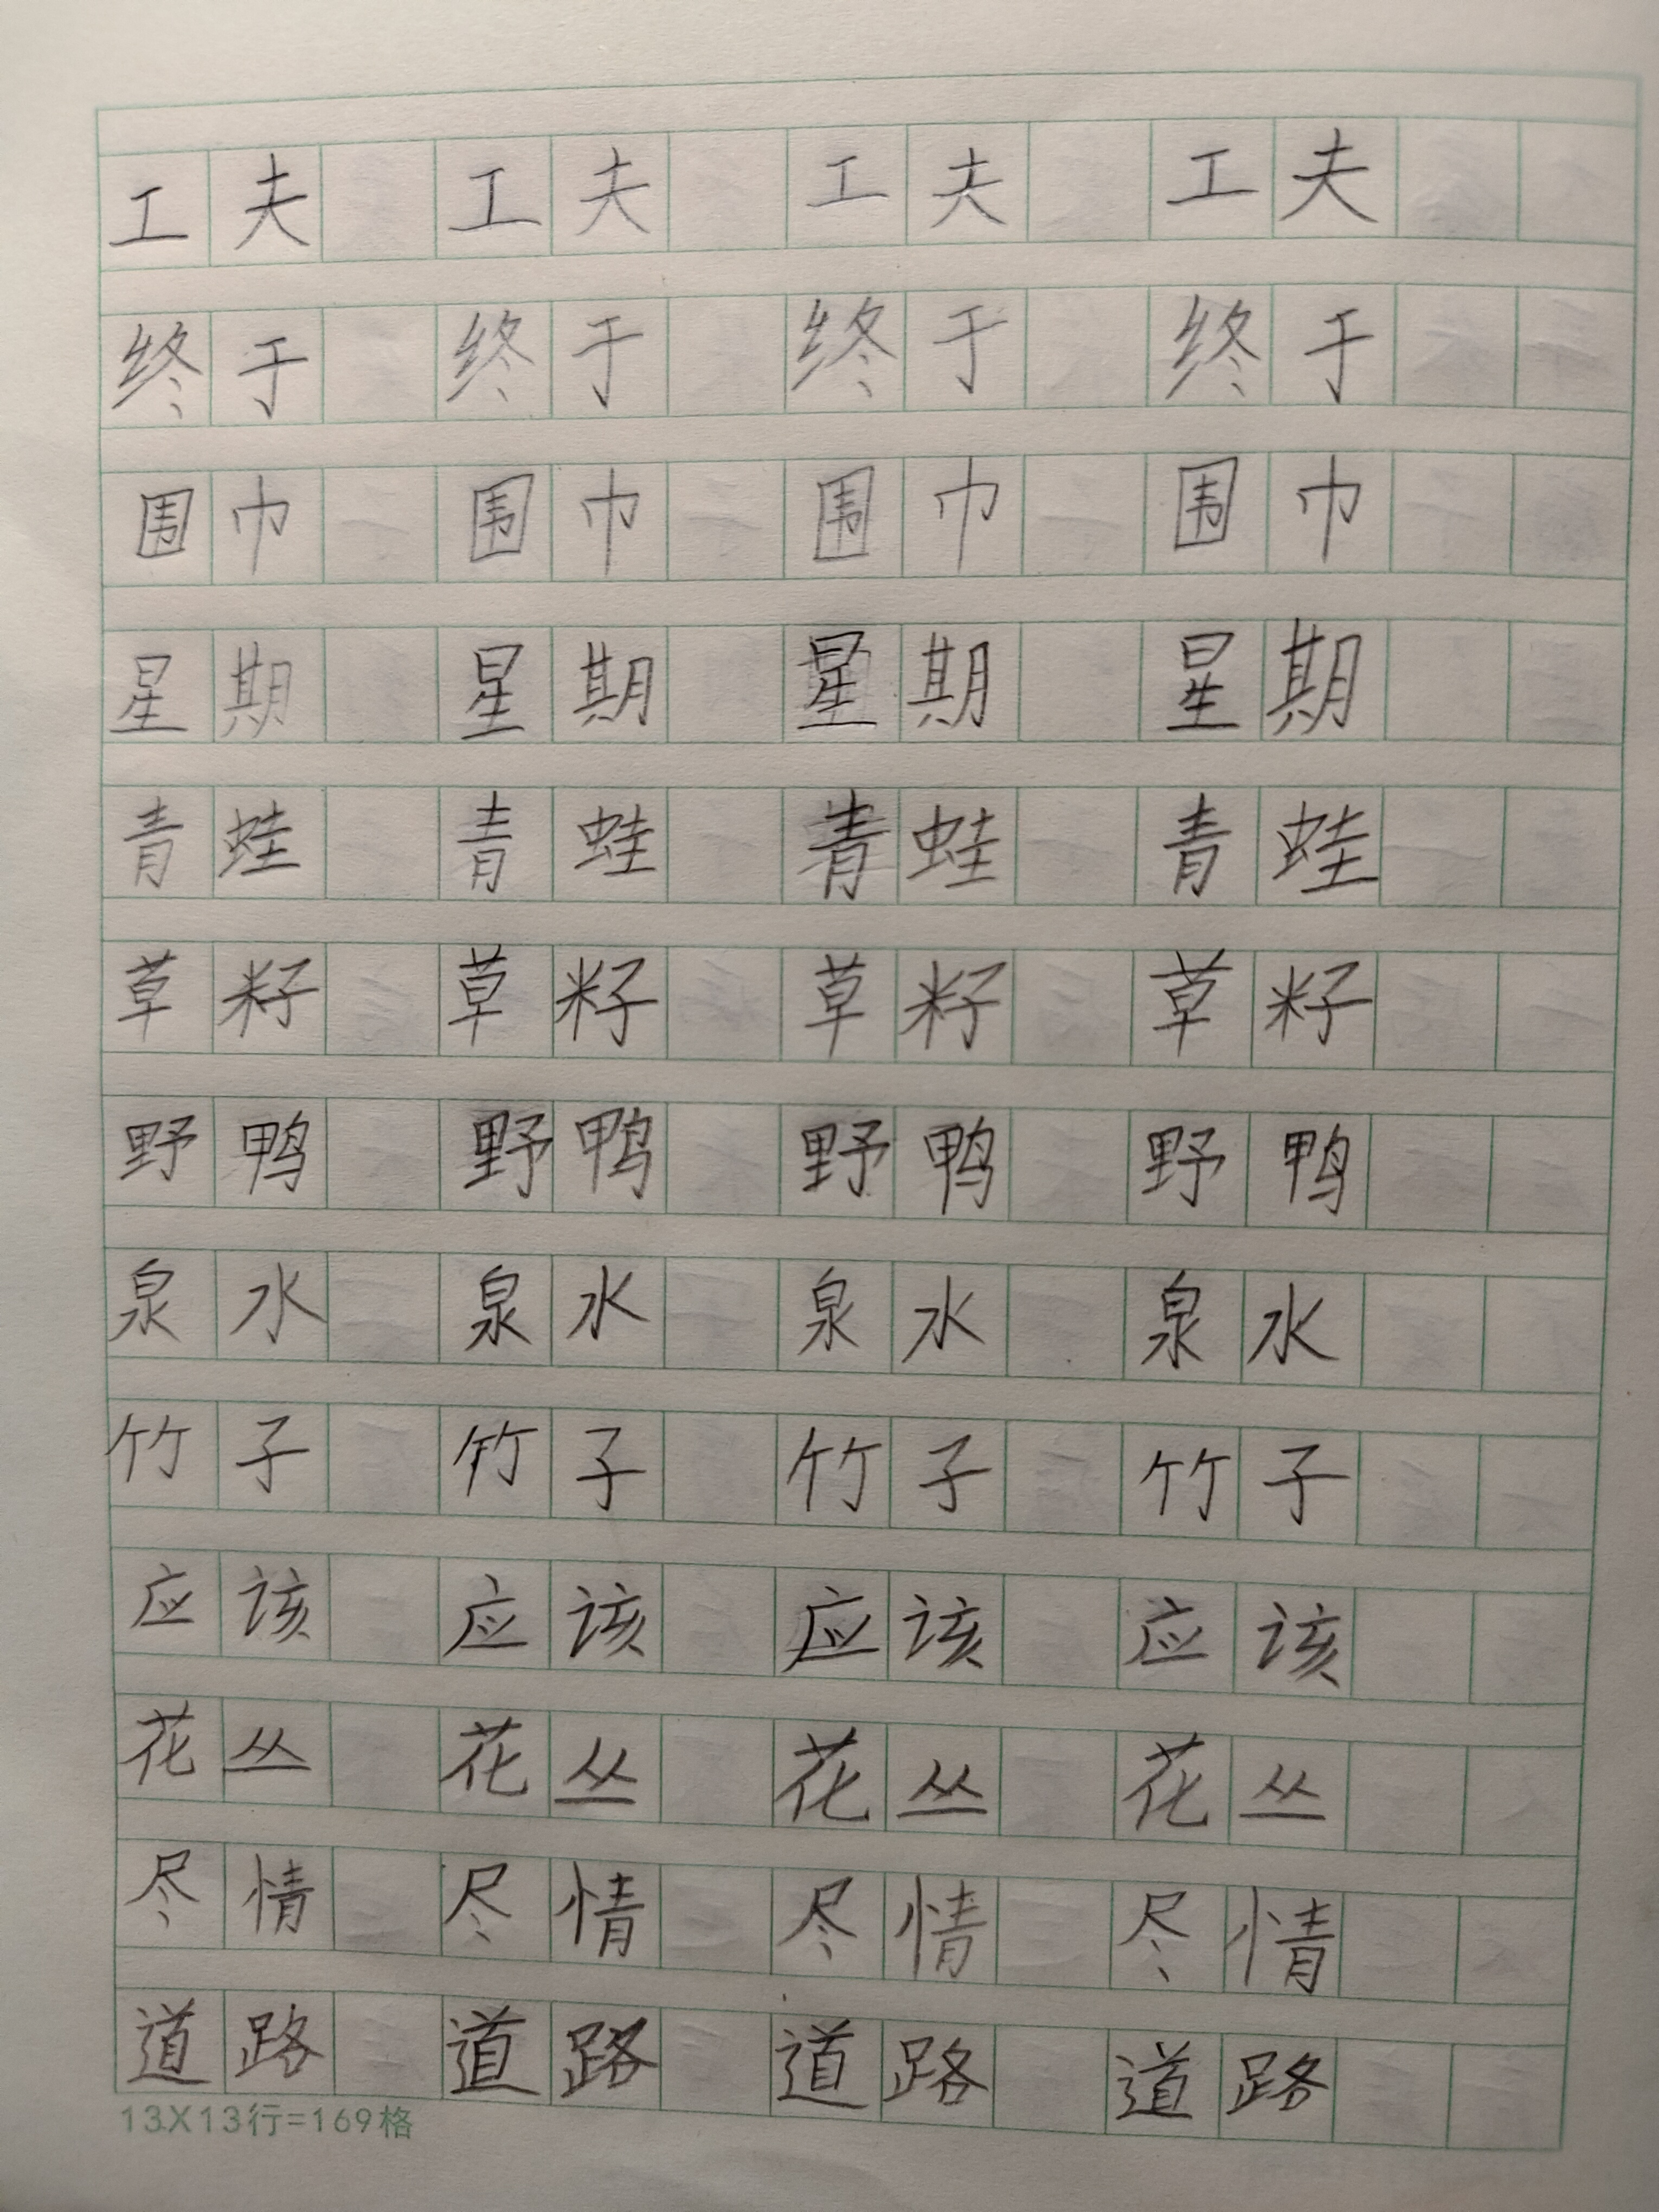 工夫 工夫 工夫 工夫
终于 终于 终于 终于
围巾 围巾 围巾 围巾
星期 星期 星期 星期
青蛙 青蛙 青蛙 青蛙
草籽 草籽 草籽 草籽
野鸭 野鸭 野鸭 野鸭
泉水 泉水 泉水 泉水
竹子 竹子 竹子 竹子
应该 应该 应该 应该
花丛 花丛 花丛 花丛
尽情 尽情 尽情 尽情
道路 道路 道路 道路
13X13行=169格